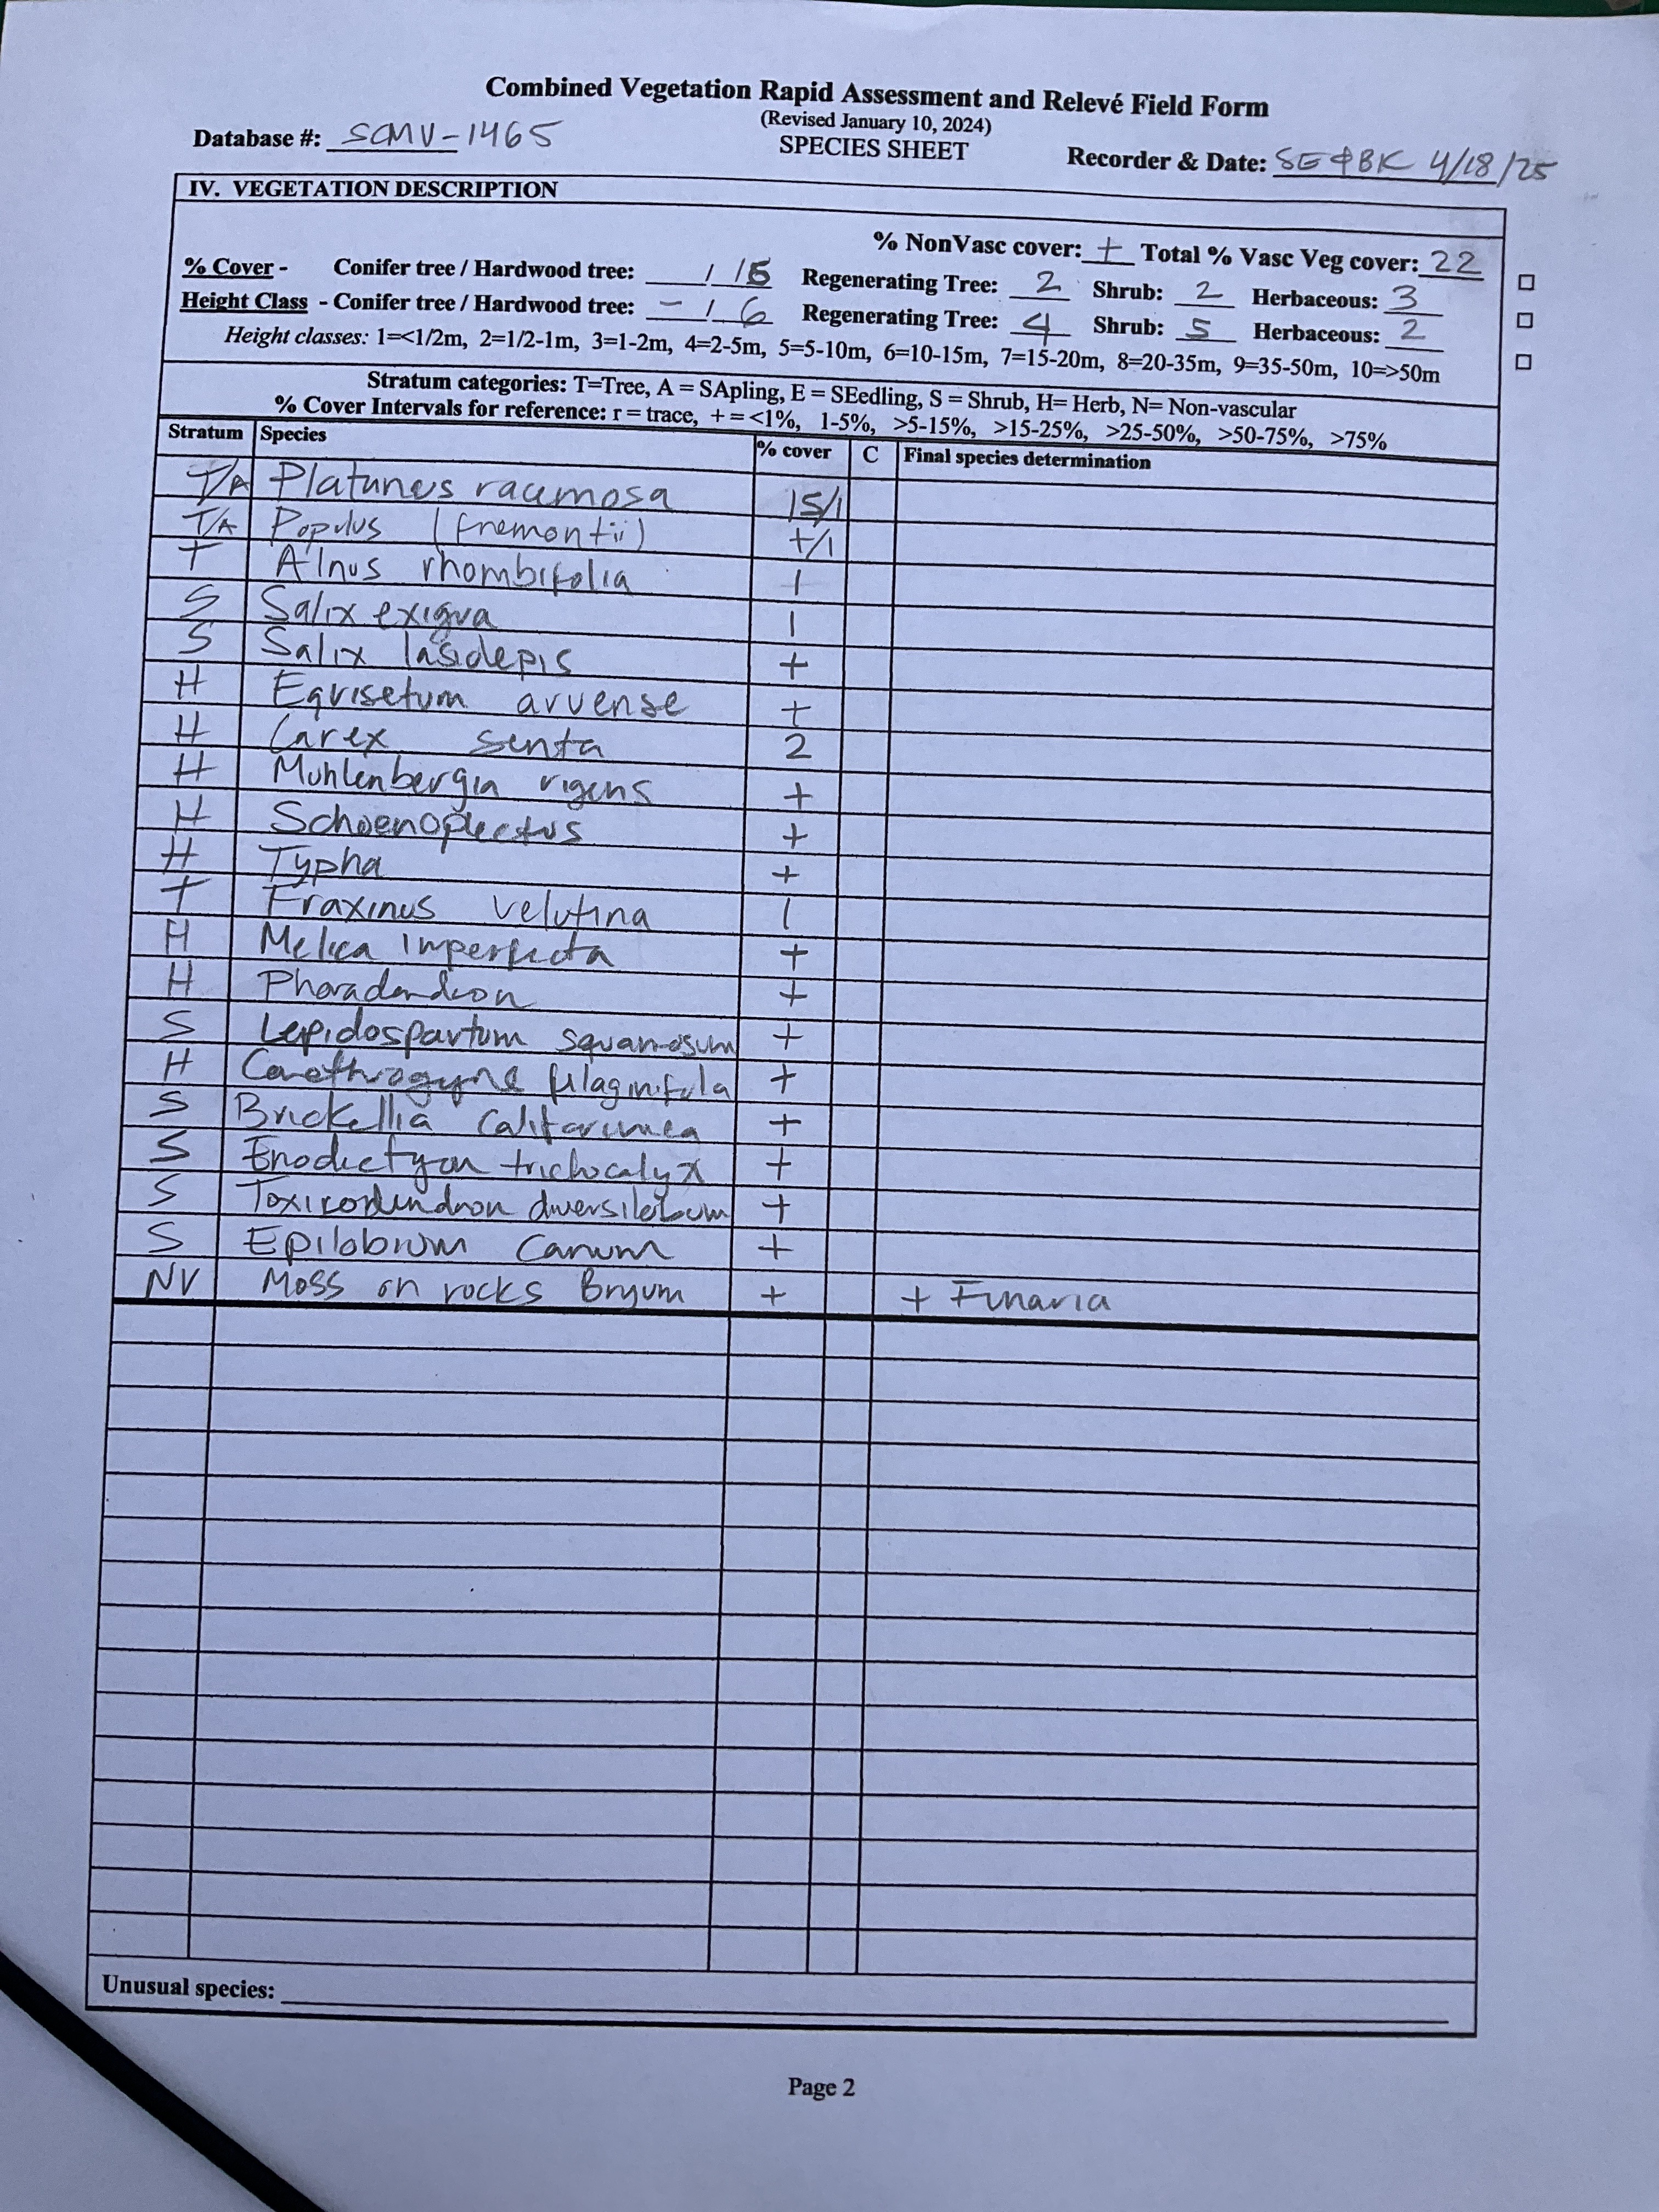 Combined Vegetation Rapid Assessment and Relevé Field Form
(Revised January 10, 2024)
Database #: SCMV-1465 SPECIES SHEET Recorder & Date: SE & BK 4/18/25
IV. VEGETATION DESCRIPTION
% NonVasc cover: + Total % Vasc Veg cover: 22
% Cover - Conifer tree / Hardwood tree: / Regenerating Tree: 2 Shrub: 2 Herbaceous: 3
Height Class - Conifer tree / Hardwood tree: - / 6 Regenerating Tree: 4 Shrub: 5 Herbaceous: 2
Height classes: 1=<1/2m, 2=1/2-1m, 3=1-2m, 4=2-5m, 5=5-10m, 6=10-15m, 7=15-20m, 8=20-35m, 9=35-50m, 10=>50m
Stratum categories: T=Tree, A = SApling, E = SEedling, S = Shrub, H= Herb, N= Non-vascular
% Cover Intervals for reference: r = trace, + = <1%, 1-5%, >5-15%, >15-25%, >25-50%, >50-75%, >75%
Stratum Species % cover C Final species determination
T/A Platunus racemosa 15/1
T/A Populus (fremontii) +/1
T Alnus rhombifolia 1
S Salix exigua 1
S Salix lasiolepis +
H Equisetum arvense +
H Carex senta 2
H Muhlenbergia rigens +
H Schoenoplectus +
H Typha +
T Fraxinus velutina 1
H Melica imperfecta +
H Phoradendron +
S Lepidospartum squamosum +
H Corethrogyne filaginifolia +
S Brickellia californica +
S Eriodictyon trichocalyx +
S Toxicodendron diversilobum +
S Epilobium canum +
NV Moss on rocks Bryum + + Funaria
Unusual species:
Page 2